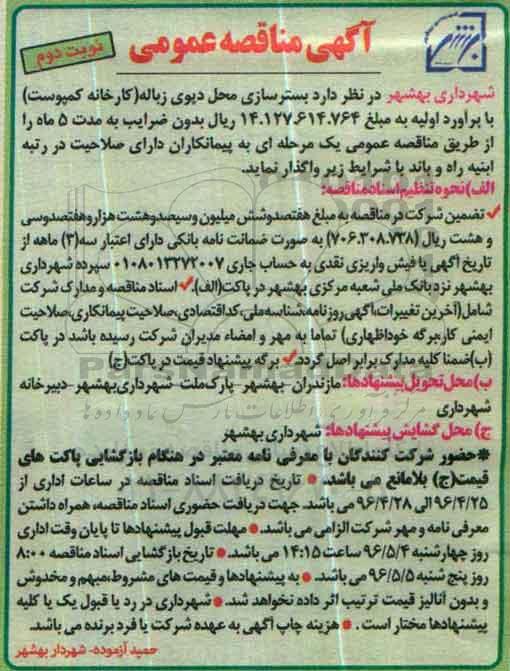 آگهی مناقصه عمومی
نوبت دوم
شهرداری بهشهر در نظر دارد بسترسازی محل دپوی زباله(کارخانه کمپوست)
با برآورد اولیه به مبلغ ۱۴.۱۲۷.۶۱۴.۷۶۴ ریال بدون ضرایب به مدت ۵ ماه را
از طریق مناقصه عمومی یک مرحله ای به پیمانکاران دارای صلاحیت در رتبه
ابنیه راه و باند با شرایط زیر واگذار نماید.
الف)نحوه تنظیم اسناد مناقصه:
✓ تضمین شرکت در مناقصه به مبلغ هفتصدوشش میلیون وسیصدوهشت هزاروهفتصدوسی
و هشت ریال (۷۰۶.۳۰۸.۷۳۸) به صورت ضمانت نامه بانکی دارای اعتبار سه(۳) ماهه از
تاریخ آگهی یا فیش واریزی نقدی به حساب جاری ۰۱۰۸۰۱۳۲۷۲۰۰۷ سپرده شهرداری
بهشهر نزد بانک ملی شعبه مرکزی بهشهر در پاکت(الف). ✓ اسناد مناقصه و مدارک شرکت
شامل(آخرین تغییرات،آگهی روزنامه،شناسه ملی،کداقتصادی،صلاحیت پیمانکاری،صلاحیت
ایمنی کار،برگه خوداظهاری) تماما به مهر و امضاء مدیران شرکت رسیده باشد در پاکت
(ب)ضمنا کلیه مدارک برابر اصل گردد. ✓ برگه پیشنهاد قیمت در پاکت(ج)
ب)محل تحویل پیشنهادها: مازندران بهشهر پارک ملت شهرداری بهشهر-دبیرخانه
شهرداری
ج) محل گشایش پیشنهادها: شهرداری بهشهر
*حضور شرکت کنندگان با معرفی نامه معتبر در هنگام بازگشایی پاکت های
قیمت(ج) بلامانع می باشد. ● تاریخ دریافت اسناد مناقصه در ساعات اداری از
۹۶/۴/۲۵ الی ۹۶/۴/۲۸ می باشد. جهت دریافت حضوری اسناد مناقصه، همراه داشتن
معرفی نامه و مهر شرکت الزامی می باشد. ● مهلت قبول پیشنهادها تا پایان وقت اداری
روز چهارشنبه ۹۶/۵/۴ ساعت ۱۴:۱۵ می باشد. ● تاریخ بازگشایی اسناد مناقصه ۸:۰۰
روز پنج شنبه ۹۶/۵/۵ می باشد. ● به پیشنهادها و قیمت های مشروط،مبهم و مخدوش
و بدون آنالیز قیمت ترتیب اثر داده نخواهد شد. ● شهرداری در رد یا قبول یک یا کلیه
پیشنهادها مختار است . ● هزینه چاپ آگهی به عهده شرکت یا فرد برنده می باشد.
حمید آزموده- شهردار بهشهر